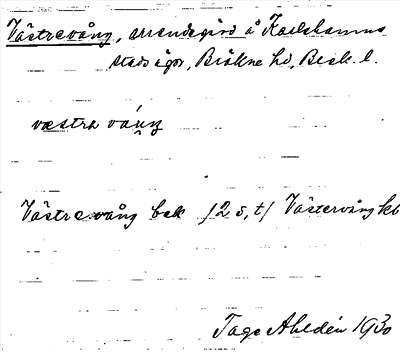 Västrevång, arrendegård å Karlshamns
stads ägor, Bräkne hd, Blek. l.
væstra váŋ
Västrevång bek /2 s, t/ Västervång kb
Tage Ahldén 1930